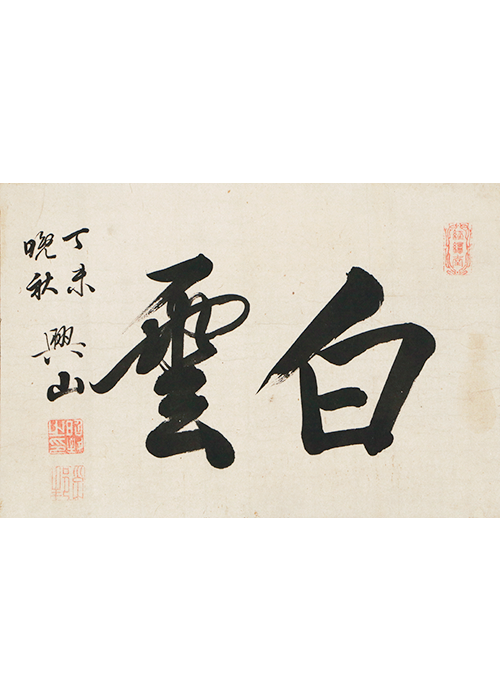 白雲
丁未
晚秋
興山